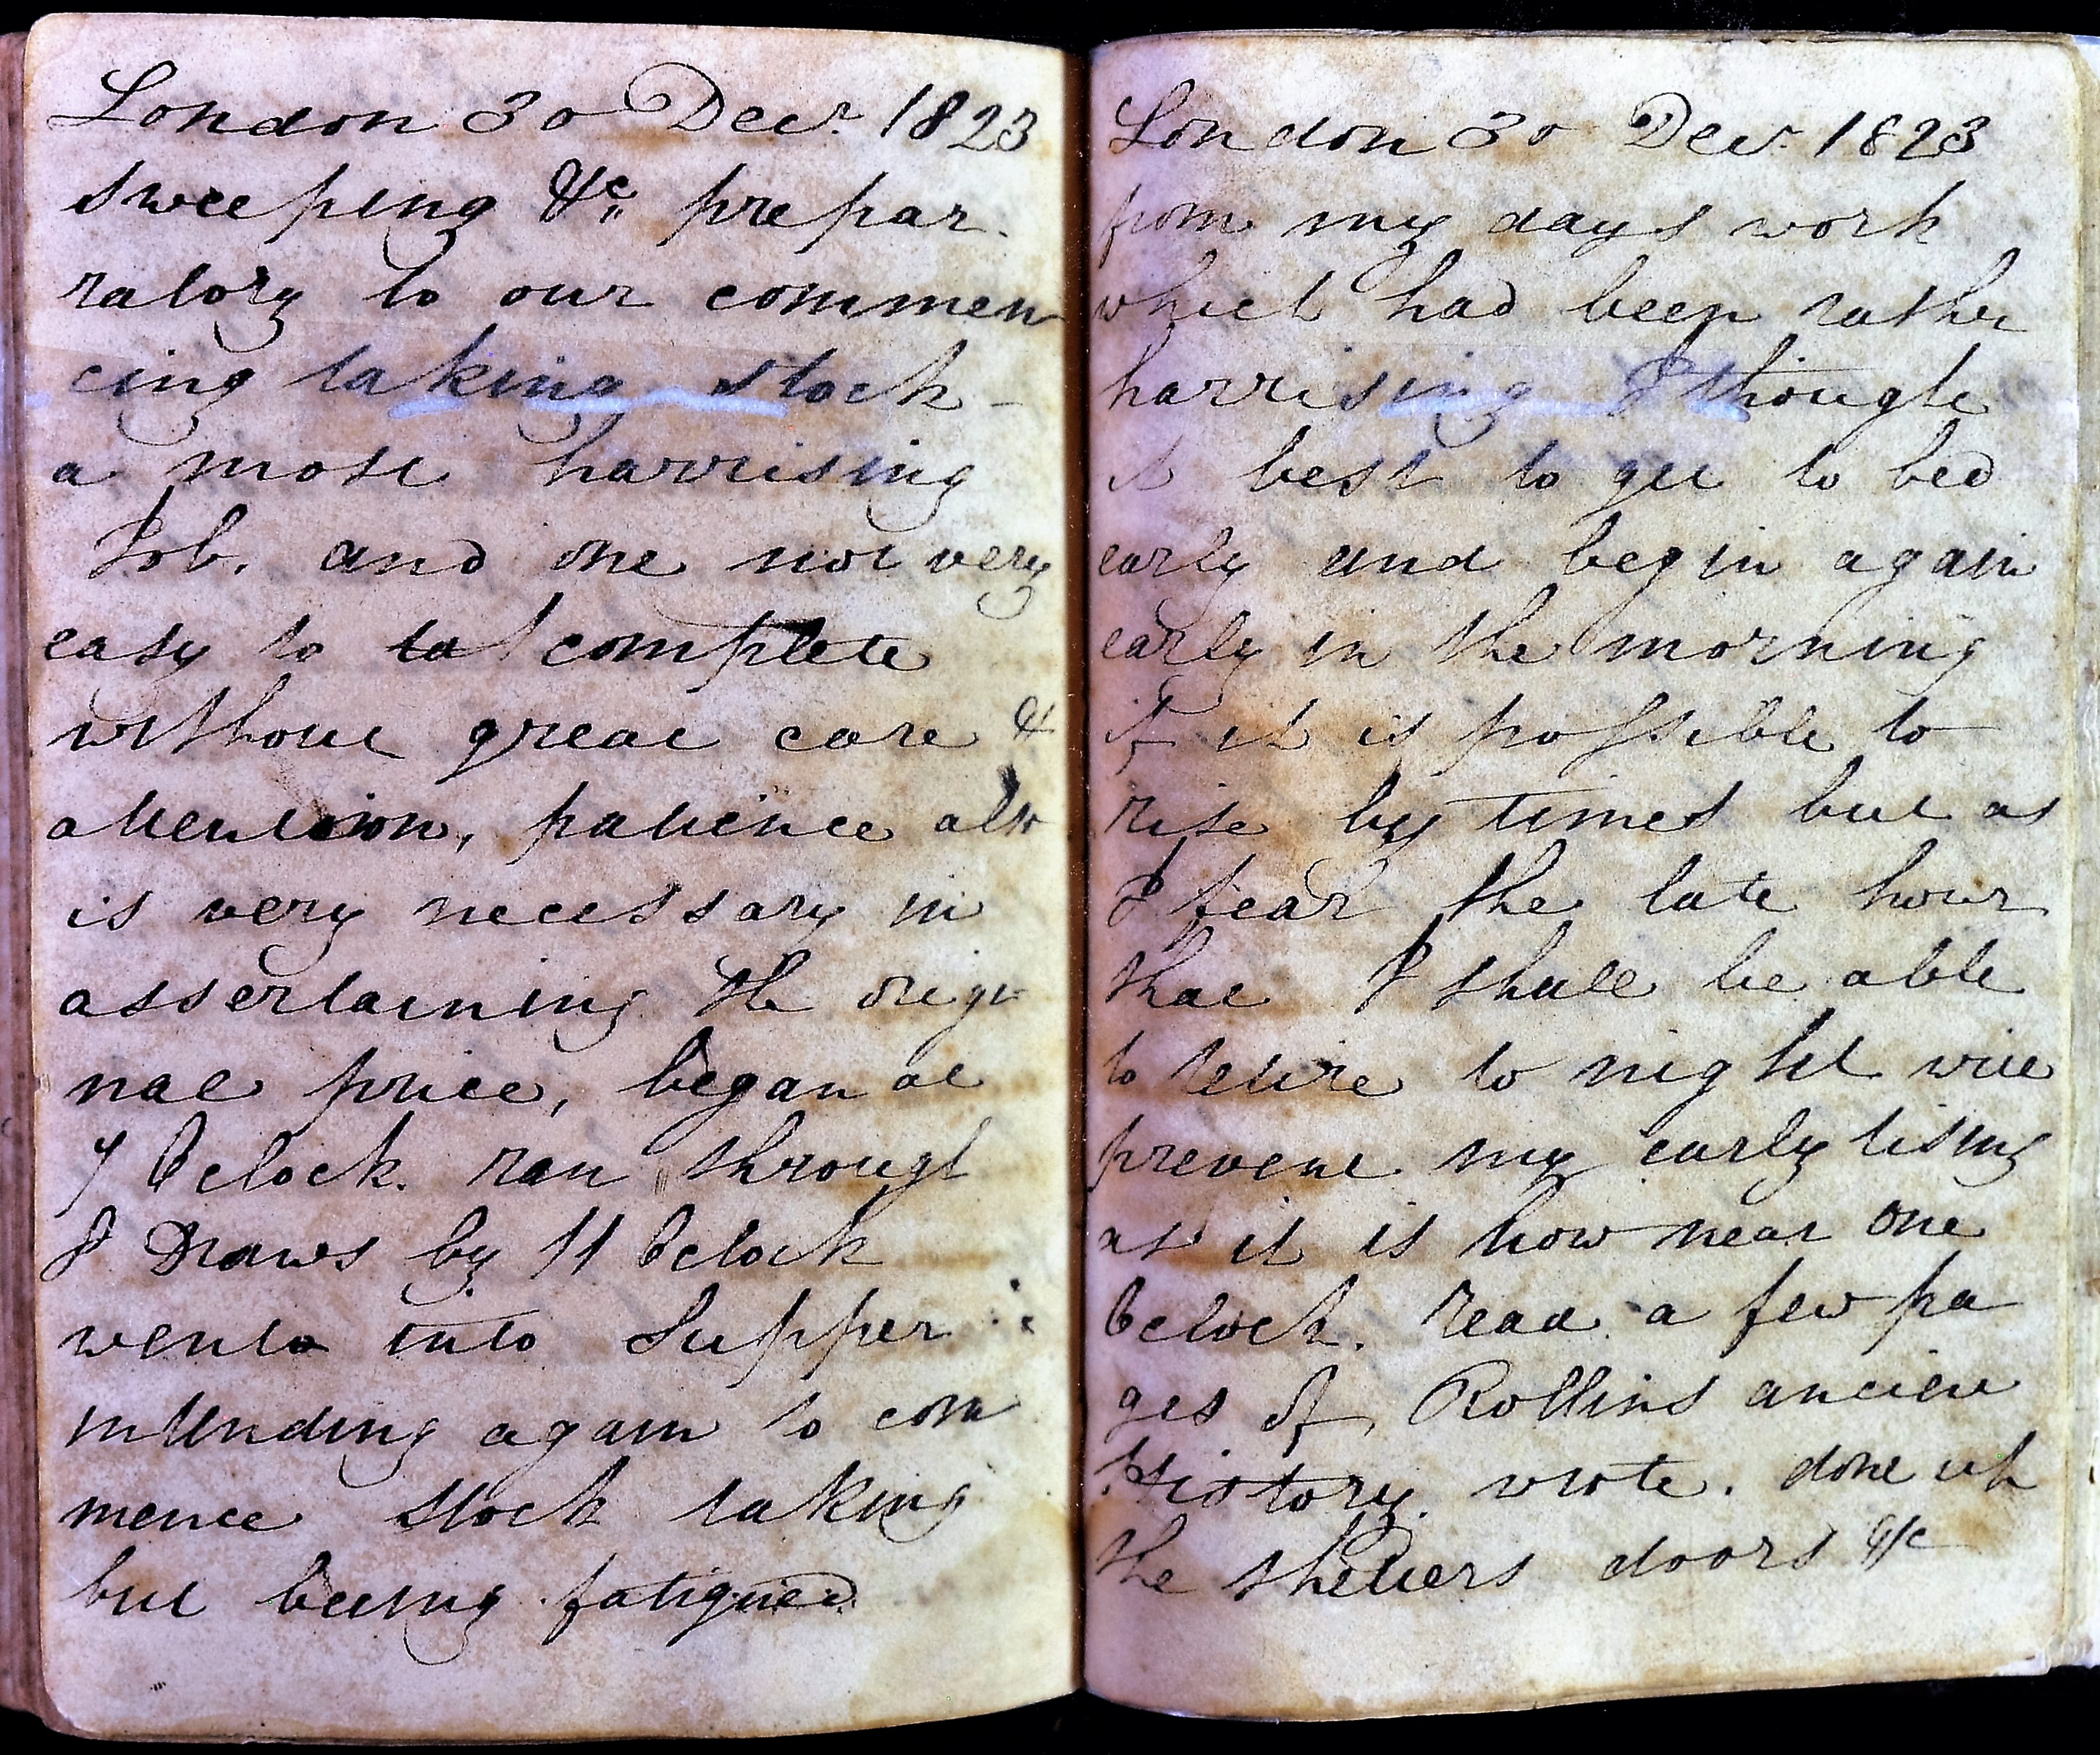 London 30 Decr. 1823
sweeping &c prepar.
ratory to our commen
cing taking stock -
a most harrising
Job. and one not very
easy to to complete
without great care &
attention, patience also
is very necessary in
assertaining the origi
nal price, began at
7 Oclock. ran through
8 Draws by 11 Oclock
went into Supper
intending again to com
mence stock taking
but being fatigued
London 30 Decr. 1823
from my days work
which had been rather
harrising I thought
it best to get to bed
early and begin again
early in the morning
if it is possible to
rise by times but as
I fear the late hour
that I shall be able
to retire to night will
prevent my early rising
as it is now near one
Oclock. read a few pa
ges of Rollins ancient
History. wrote. done up
the shetters doors &c